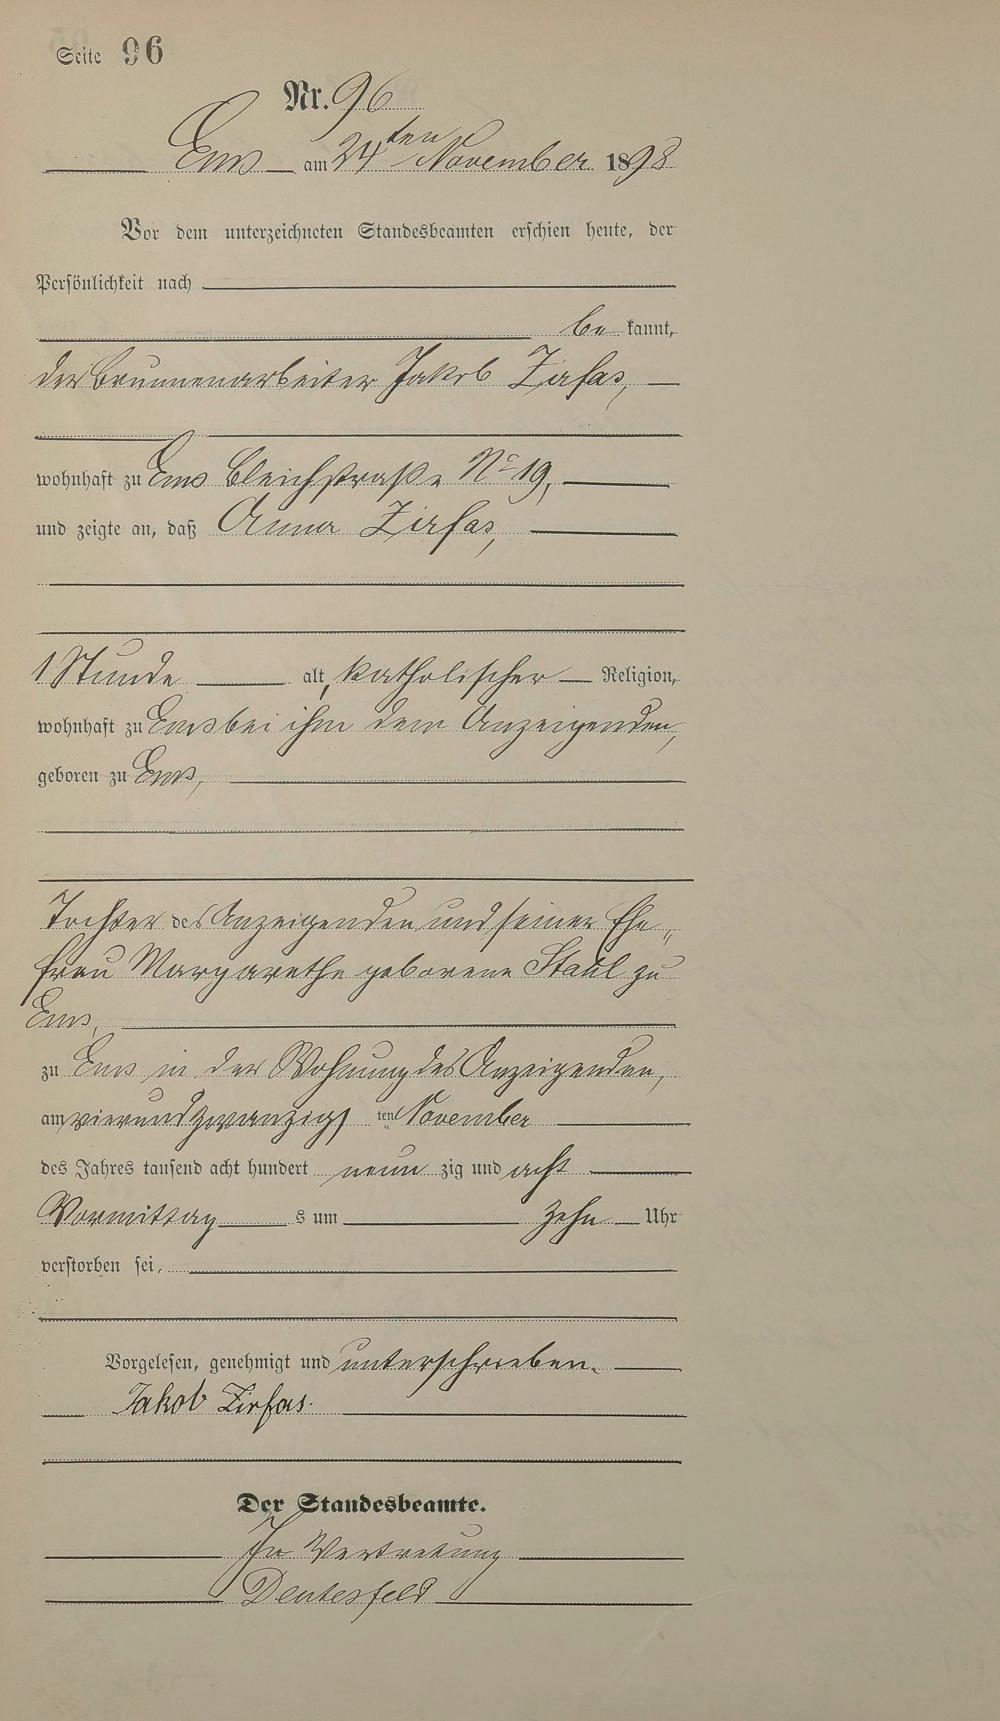 Seite 96
Nr. 96
Ems am 24ten November 1898
Vor dem unterzeichneten Standesbeamten erschien heute, der
Persönlichkeit nach
be kannt,
der Brunnenarbeiter Jakob Zirfas,
wohnhaft zu Ems Bleichstraße No 19,
und zeigte an, daß Anna Zirfas,
1 Stunde alt, katholischer Religion,
wohnhaft zu Ems bei ihm dem Anzeigenden,
geboren zu Ems,
Tochter des Anzeigenden und seiner Ehe„
frau Margarethe geborene Stahl zu
Ems,
zu Ems in der Wohnung des Anzeigenden,
am vierundzwanzigs ten November
des Jahres tausend acht hundert neun zig und acht
Vormittag s um zehn Uhr
verstorben sei,
Vorgelesen, genehmigt und unterschrieben.
Jakob Zirfas.
Der Standesbeamte.
In Vertretung